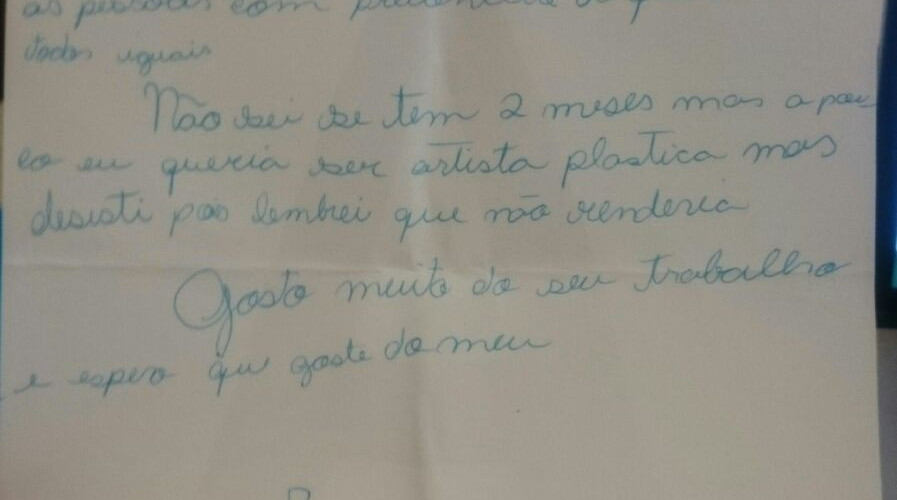 as pessoas com
todos iguais
Não sei se tem 2 meses mas a pou-
co eu queria ser artista plastica mas
desisti pois lembrei que não renderia
Gosto muito do seu trabalho
e espero que goste do meu